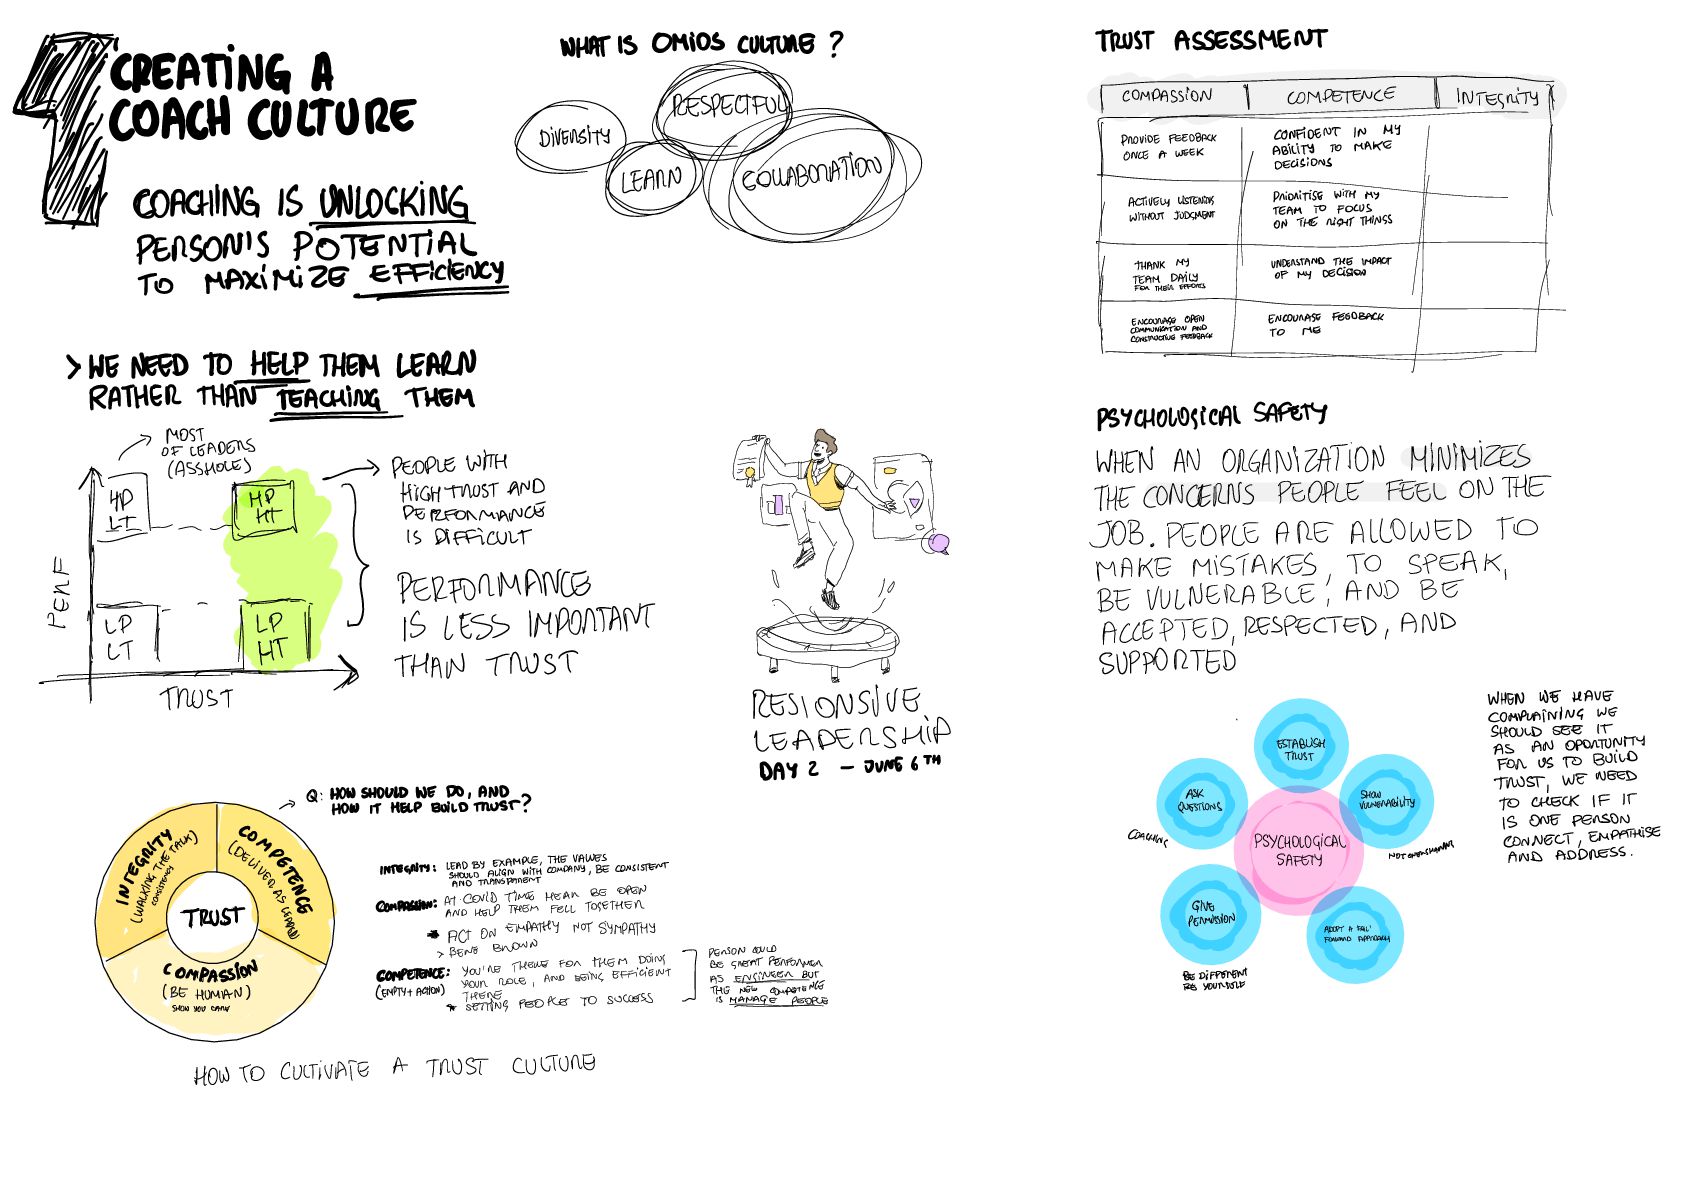 CREATING A
COACH CULTURE
COACHING IS UNLOCKING
PERSON'S POTENTIAL
TO MAXIMIZE EFFICIENCY
> WE NEED TO HELP THEM LEARN
RATHER THAN TEACHING THEM
MOST
OF LEADERS
(ASSHOLE)
HP
LT
HP
HT
LP
LT
LP
HT
PERF
TRUST
PEOPLE WITH
HIGH TRUST AND
PERFORMANCE
IS DIFFICULT
PERFORMANCE
IS LESS IMPORTANT
THAN TRUST
Q: HOW SHOULD WE DO, AND
HOW IT HELP BUILD TRUST?
INTEGRITY
(WALKING THE TALK)
CONSISTENCY
COMPETENCE
(DELIVER AS LEADER)
TRUST
COMPASSION
(BE HUMAN)
SHOW YOU CARE
INTEGRITY: LEAD BY EXAMPLE, THE VALUES
SHOULD ALIGN WITH COMPANY, BE CONSISTENT
AND TRANSPARENT
COMPASSION: AT COVID TIME HEAR BE OPEN
AND HELP THEM FELL TOGETHER
* ACT ON EMPATHY NOT SYMPATHY
> BENE BROWN
COMPETENCE: YOU'RE THERE FOR THEM DOING
(EMPTY + ACTION) YOUR ROLE, AND BEING EFFICIENT
THERE
* SETTING PEOPLE TO SUCCESS
PERSON COULD
BE GREAT PERFORMER
AS ENGINEER BUT
THE NEW COMPETENCE
IS MANAGE PEOPLE
HOW TO CULTIVATE A TRUST CULTURE
WHAT IS OMIOS CULTURE?
DIVERSITY
RESPECTFUL
LEARN
COLLABORATION
RESIONSIVE
LEADERSHIP
DAY 2 – JUNE 6TH
TRUST ASSESSMENT
COMPASSION COMPETENCE INTEGRITY
PROVIDE FEEDBACK
ONCE A WEEK
CONFIDENT IN MY
ABILITY TO MAKE
DECISIONS
ACTIVELY LISTENING
WITHOUT JUDGMENT
PRIORITISE WITH MY
TEAM TO FOCUS
ON THE RIGHT THINGS
THANK MY
TEAM DAILY
FOR THEIR EFFORTS
UNDERSTAND THE IMPACT
OF MY DECISION
ENCOURAGE OPEN
COMMUNICATION AND
CONSTRUCTING FEEDBACK
ENCOURAGE FEEDBACK
TO ME
PSYCHOLOGICAL SAFETY
WHEN AN ORGANIZATION MINIMIZES
THE CONCERNS PEOPLE FEEL ON THE
JOB. PEOPLE ARE ALLOWED TO
MAKE MISTAKES, TO SPEAK,
BE VULNERABLE, AND BE
ACCEPTED, RESPECTED, AND
SUPPORTED
ESTABLISH
TRUST
ASK
QUESTIONS
COACHING
SHOW
VULNERABILITY
NOT OVERSHARING
PSYCHOLOGICAL
SAFETY
GIVE
PERMISSION
BE DIFFERENT
BE YOUR ROLE
ADOPT A FAIL
FORWARD APPROACH
WHEN WE HAVE
COMPLAINING WE
SHOULD SEE IT
AS AN OPORTUNITY
FOR US TO BUILD
TRUST, WE NEED
TO CHECK IF IT
IS ONE PERSON
CONNECT, EMPATHISE
AND ADDRESS.